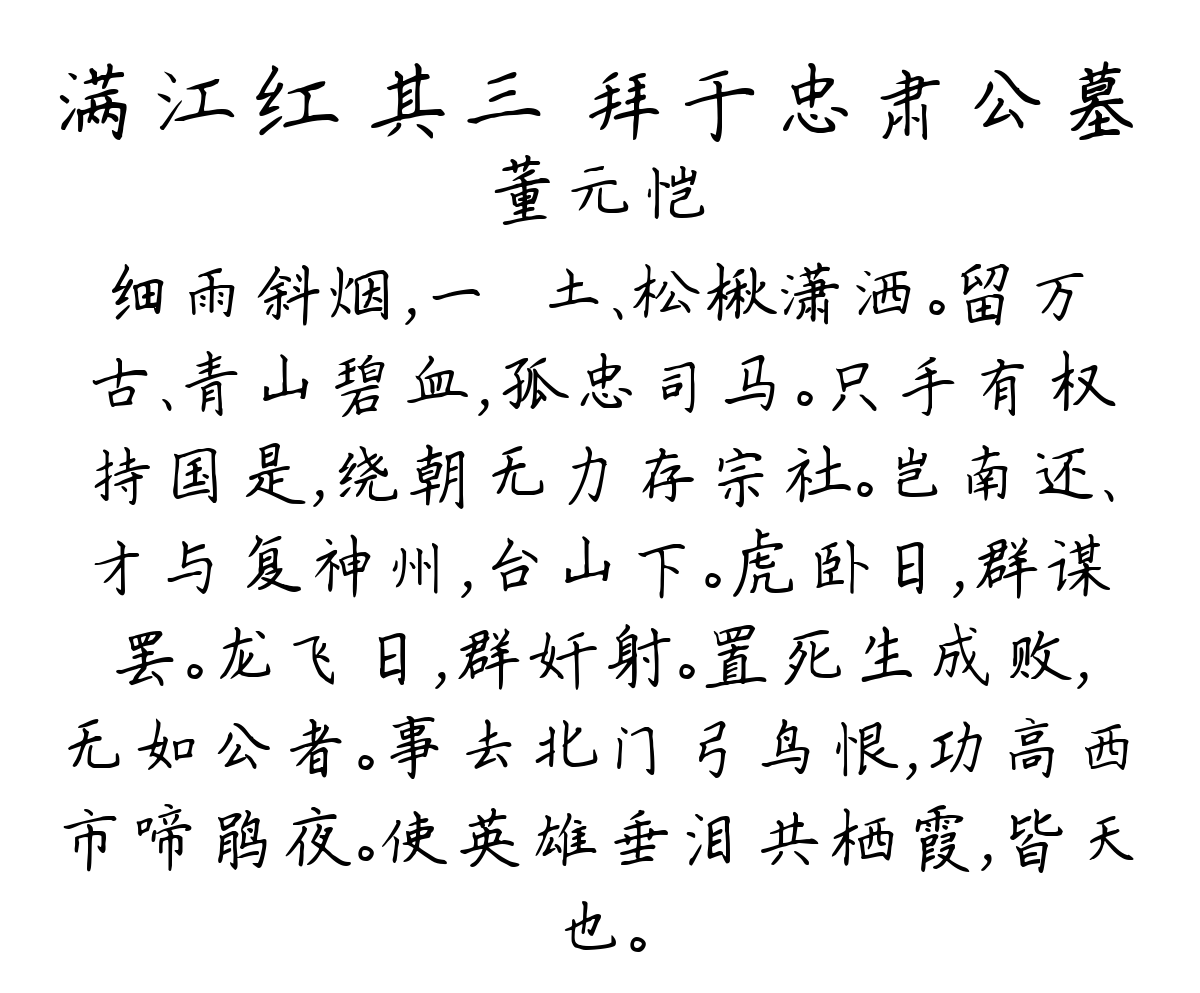 满江红 其三 拜于忠肃公墓
董元恺
细雨斜烟,一 土、松楸潇洒。留万
古、青山碧血,孤忠司马。只手有权
持国是,绕朝无力存宗社。岂南还、
才与复神州,台山下。虎卧日,群谋
罢。龙飞日,群奸射。置死生成败,
无如公者。事去北门弓鸟恨,功高西
市啼鹃夜。使英雄垂泪共栖霞,皆天
也。